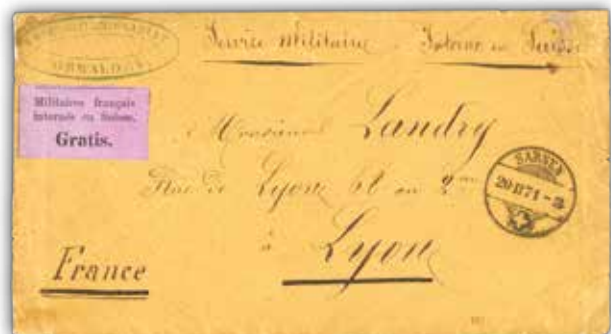 OBWALDEN
Service Militaire - Interné en Suisse
Militaires français
internés en Suisse.
Gratis.
Monsieur Landry
Rue de Lyon 61 au 2me
à
Lyon
France
SARNEN
20 II 71 - 3